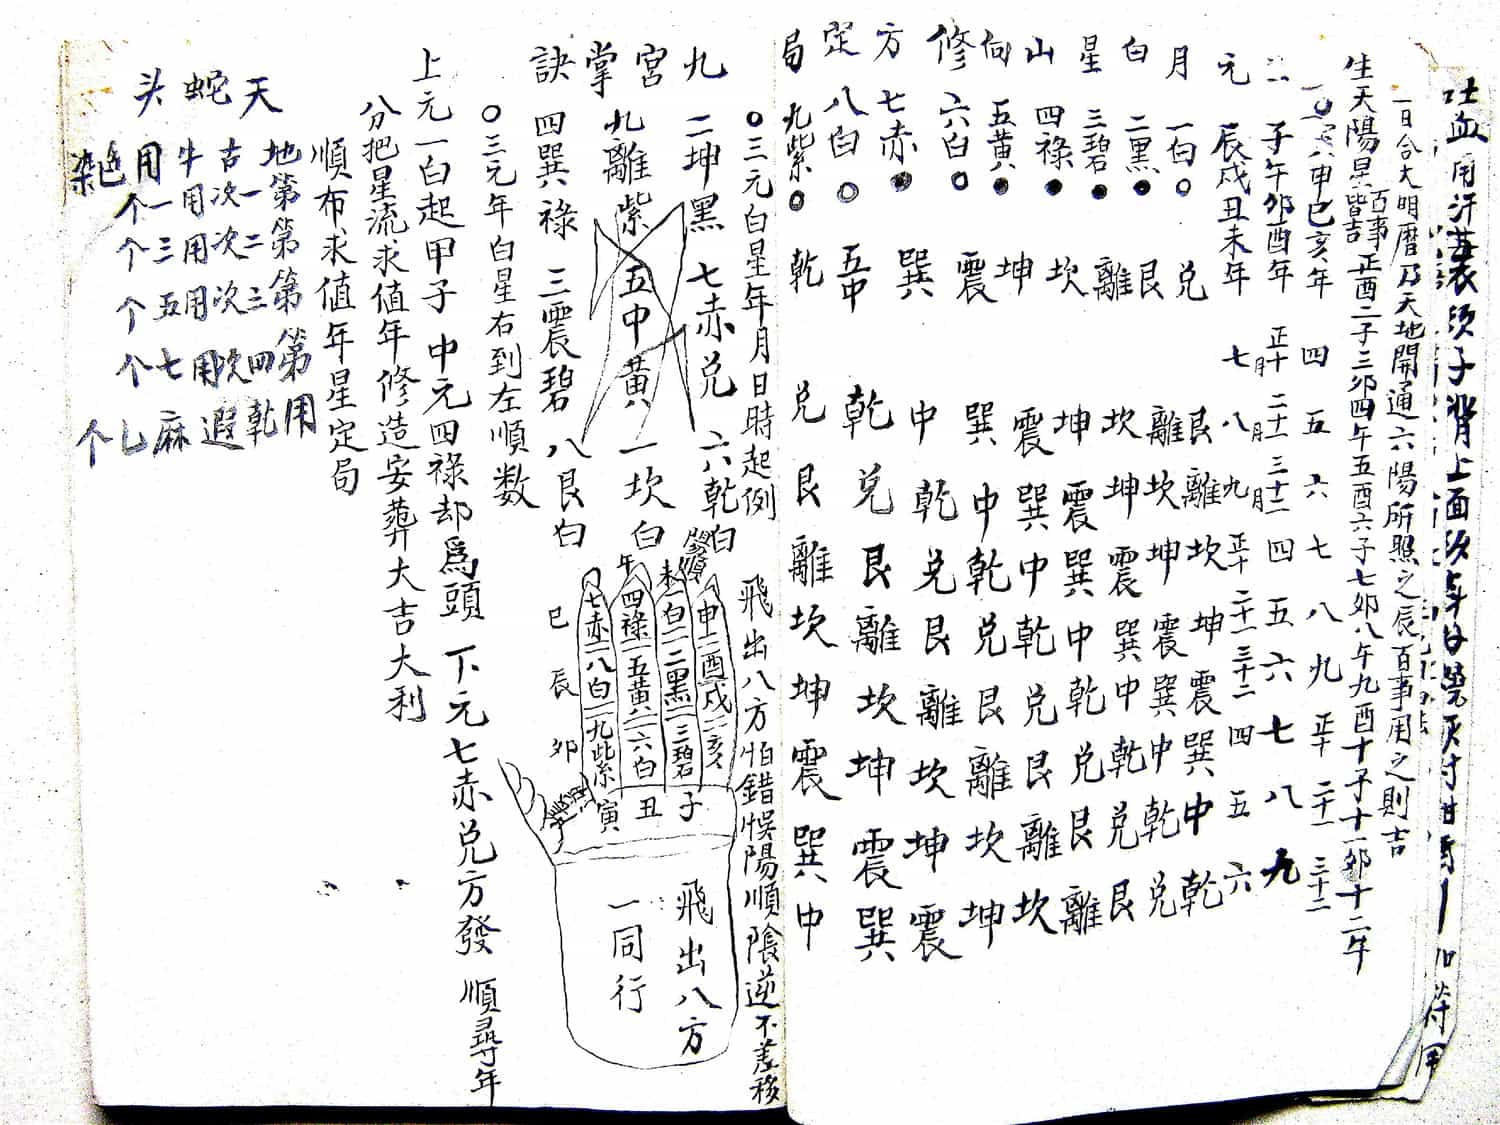 一百合大明曆乃天地開通六陽所照之辰百事用之則吉
生天陽星皆吉百事 正酉二子三卯四午五酉六子七卯八午九酉十子十一卯十二年
申巳亥年 四 五 六 七 八 九 正十 二十一 三十二
二 子午卯酉年 正十月 二十一月 三十二月 四 五 六 七 八 九
元 辰戌丑未年 七 八 九 正十 二十一 三十二 四 五 六
月 一白○ 兌 艮 離 坎 坤 震 巽 中 乾
白 二黑● 艮 離 坎 坤 震 巽 中 乾 兌
星 三碧● 離 坎 坤 震 巽 中 乾 兌 艮
山 四祿● 坎 坤 震 巽 中 乾 兌 艮 離
向 五黃● 坤 震 巽 中 乾 兌 艮 離 坎
修 六白○ 震 巽 中 乾 兌 艮 離 坎 坤
方 七赤● 巽 中 乾 兌 艮 離 坎 坤 震
定 八白○ 五中 乾 兌 艮 離 坎 坤 震 巽
局 九紫○ 乾 兌 艮 離 坎 坤 震 巽 中
九宮掌訣
○三元白星年月日時起例
二坤黑 七赤兌 六乾白
九離紫 五中黃 一坎白
四巽祿 三震碧 八艮白
飛出八方怕錯悞陽順陰逆不差移
申 酉 戌 亥
未 一白 二黑 三碧
午 四祿 五黃 六白
七赤 八白 九紫
巳 辰 卯
寅 丑 子
飛出八方
一同行
○三元年白星右到左順數
上元一白起甲子 中元四祿却為頭 下元七赤兌方發 順尋年
分把星流求值年修造安葬大吉大利
順布求值年星定局
天 蛇 头
地 古 牛 用 
第一次用一个
第二次用三个
第三次用五个
第四次用七个
用乾遐麻乚个